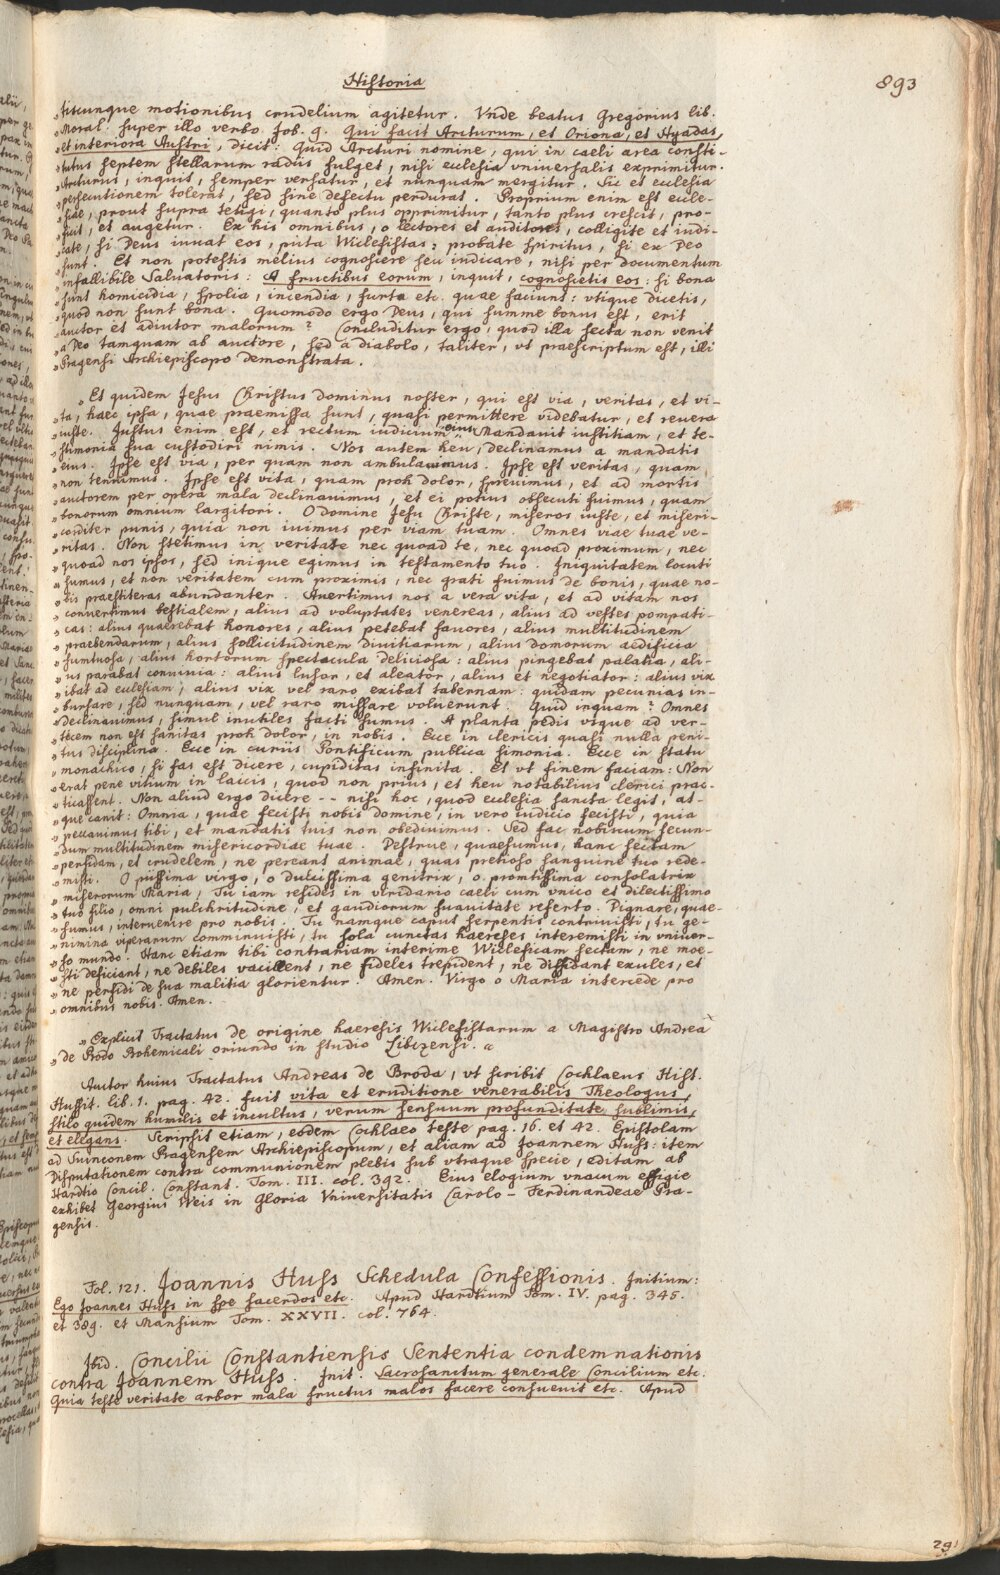 Historia
893
„titcunque motionibus crudelium agitetur. Vnde beatus Gregorius lib.
„Moral. super illo verbo Job. 9. Qui facit Arcturum, et Oriona, et Hyadas,
„et interiora Austri, dicit: Quid Arcturi nomine, qui in caeli area consti-
„tutus septem stellarum radiis fulget, nisi ecclesia vniuersalis exprimitur.
„Arcturus, inquit, semper versatur, et nunquam mergitur. Sic et ecclesia
„persecutionem tolerat, sed sine defectu perdurat. Proprium enim est eccle-
„siae, prout supra tetigi, quanto plus opprimitur, tanto plus crescit, pro-
„ficit, et augetur. Ex his omnibus, o lectores et auditores, colligite et iudi-
„cate, si Deus iuuat eos, puta Wiclefistas: probate spiritus, si ex Deo
„sunt. Et non potestis melius cognoscere seu iudicare, nisi per documentum
„infallibile Saluatoris: A fructibus eorum, inquit, cognoscietis eos: si bona
„sunt homicidia, spolia, incendia, furta etc. quae faciunt: vtique dicetis,
„quod non sunt bona. Quomodo ergo Deus, qui summe bonus est, erit
„auctor et adiutor malorum? Concluditur ergo, quod illa secta non venit
„a Deo tamquam ab auctore, sed a diabolo, taliter, vt praescriptum est, illi
„Pragensi Archiepiscopo demonstrata.
„Et quidem Jesus Christus dominus noster, qui est via, veritas, et vi-
„ta, haec ipsa, quae praemissa sunt, quasi permittere videbatur, et reuera
„iuste. Justus enim est, et rectum iudicium eius. Mandauit iustitiam, et te-
„stimonia sua custodiri nimis. Nos autem heu, declinamus a mandatis
„eius. Ipse est via, per quam non ambulauimus. Ipse est veritas, quam
„non tenuimus. Ipse est vita, quam proh dolor, spreuimus, et ad mortis
„auctorem per opera mala declinauimus, et ei potius obsecuti fuimus, quam
„bonorum omnium largitori. O domine Jesu Christe, miseros iuste, et miseri-
„corditer punis, quia non iuimus per viam tuam. Omnes viae tuae ve-
„ritas. Non stetimus in veritate nec quoad te, nec quoad proximum, nec
„quoad nos ipsos, sed inique egimus in testamento tuo. Iniquitatem locuti
„sumus, et non veritatem cum proximis, nec grati fuimus de bonis, quae no-
„bis praestiteras abundanter. Auertimus nos a vera vita, et ad vitam nos
„conuertimus bestialem, alius ad voluptates venereas, alius ad vestes pompati-
„cas: alius quaerebat honores, alius petebat fauores, alius multitudinem
„praebendarum, alius sollicitudinem diuitiarum, alius domorum aedificia
„sumtuosa, alius hortorum spectacula deliciosa: alius pingebat palatia, ali-
„us parabat conuiuia: alius lusor, et aleator, alius et negotiator: alius vix
„ibat ad ecclesiam, alius vix vel raro exibat tabernam: quidam pecunias in-
„bursare, sed nunquam, vel raro missare voluerunt. Quid inquam? Omnes
„declinauimus, simul inutiles facti sumus. A planta pedis vsque ad ver-
„ticem non est sanitas proh dolor, in nobis. Ecce in clericis quasi nulla peni-
„tus disciplina. Ecce in curiis Pontificum publica simonia. Ecce in statu
„monachico, si fas est dicere, cupiditas infinita. Et vt finem faciam: Non
„erat pene vitium in laicis, quod non prius, et heu notabilius clerici prac-
„ticassent. Non aliud ergo dicere -- nisi hoc, quod ecclesia sancta legit, at-
„que canit: Omnia, quae fecisti nobis domine, in vero iudicio fecisti, quia
„peccauimus tibi, et mandatis tuis non obediuimus. Sed fac nobiscum secun-
„dum multitudinem misericordiae tuae. Destrue, quaesumus, hanc sectam
„perfidam, et crudelem, ne pereant animae, quas pretioso sanguine tuo rede-
„misti. O piissima virgo, o dulcissima genitrix, o promtissima consolatrix
„miserorum Maria, Tu iam resides in viridario caeli cum vnico et dilectissimo
„tuo filio, omni pulchritudine, et gaudiorum suauitate referto. Dignare, quae-
„sumus, interuenire pro nobis. Tu namque caput serpentis contriuisti, tu ge-
„nimina viperarum comminuisti, tu sola cunctas haereses interemisti in vniuer-
„so mundo. Hanc etiam tibi contrariam interime Wiclefican sectam, ne moe-
„sti deficiant, ne debiles vacillent, ne fideles trepident, ne diffidant exules, et
„ne perfidi de sua malitia glorientur. Amen. Virgo o Maria intercede pro
„omnibus nobis. Amen.
„Explicit Tractatus de origine haeresis Wiclefistarum a Magistro Andrea
„de Brodo Bohemicali oriundo in studio Libczensi.“
Auctor huius Tractatus Andreas de Broda, vt scribit Cochlaeus Hist.
Hussit. lib. 1. pag. 42. fuit vita et eruditione venerabilis Theologus,
stilo quidem humilis et incultus, verum sensuum profunditate sublimis,
et elegans. Scripsit etiam, eodem Cochlaeo teste pag. 16. et 42. Epistolam
ad Suinconem Pragensem Archiepiscopum, et aliam ad Joannem Huss: item
Disputationem contra communionem plebis sub vtraque specie, editam ab
Hardtio Concil. Constant. Tom. III. col. 392. Eius elogium vnacum effigie
exhibet Georgius Weis in Gloria Vniuersitatis Carolo-Ferdinandeae Pra-
gensis.
Fol. 121. Joannis Huss Schedula Confessionis. Initium:
Ego Joannes Huss in spe sacerdos etc. Apud Hardtium Tom. IV. pag. 345.
et 389. et Mansium Tom. XXVII. col. 764.
Ibid. Concilii Constantiensis Sententia condemnationis
contra Joannem Huss. Init. Sacrosanctum generale Concilium etc.
Quia teste veritate arbor mala fructus malos facere consueuit etc. Apud